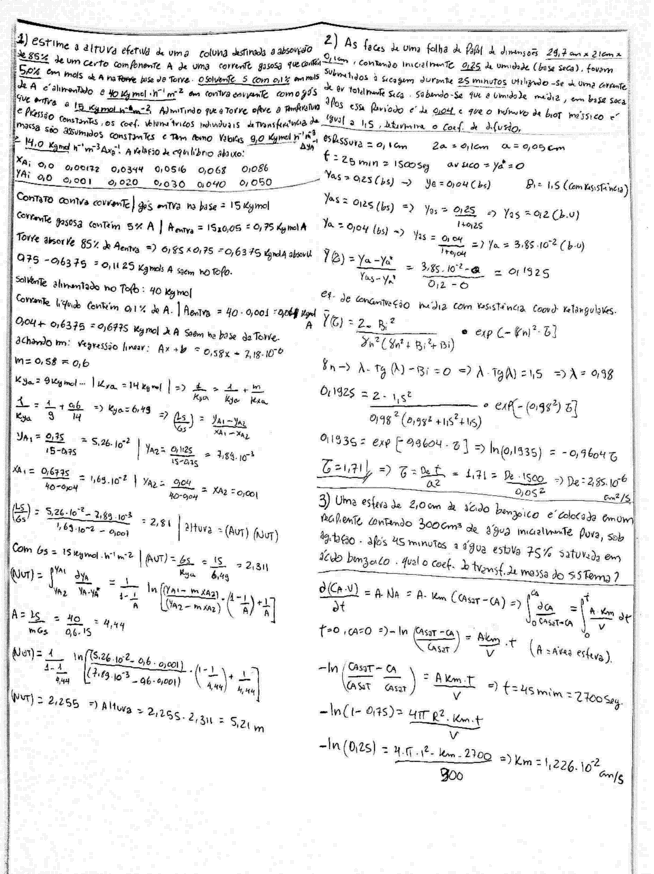 1) estime a altura efetiva de uma coluna destinada a absorção
de 85% de um certo componente A de uma corrente gasosa que contém
5,0% em mols de A na base da Torre. o solvente S com 0,1% em mols
de A é alimentado a 40 Kgmol·h⁻¹m⁻² em contra corrente com o gás
que entra a 15 Kgmol h⁻¹m⁻². Admitindo que a torre opere a Temperatura
e Pressão constantes, os coef. volumétricos individuais de transferência de
massa são assumidos constantes e tem como valores 9,0 Kgmol h⁻¹m⁻³ Δy⁻¹
e 14,0 Kgmol h⁻¹m⁻³ Δx⁻¹. A relação de equilíbrio abaixo:
XAi 0,0 0,00172 0,0344 0,0516 0,068 0,086
YAi 0,0 0,001 0,020 0,030 0,040 0,050
Contato contra corrente / gás entra na base = 15 Kgmol
Corrente gasosa contém 5% A | Aentra = 15x0,05 = 0,75 Kgmol A
Torre absorve 85% do Aentra => 0,85 x 0,75 = 0,6375 Kgmol A absorvido
0,75 - 0,6375 = 0,1125 Kgmols A saem no Topo.
Solvente alimentado no Topo: 40 Kgmol
Corrente líquido contém 0,1% de A. | Aentra = 40·0,001 = 0,04 Kgmol A
0,04 + 0,6375 = 0,6775 Kgmol de A saem na base da Torre.
achando m: regressão linear: Ax + b = 0,58x + 7,18·10⁻⁶
m = 0,58 ≈ 0,6
Kya = 9 Kgmol... | Kxa = 14 Kgmol | => 1/Kya = 1/Kya + m/Kxa
1/Kya = 1/9 + 0,6/14 => Kya = 6,49 => (Ls/Gs) = YA1-YA2/XA1-XA2
YA1 = 0,75/15-0,75 = 5,26·10⁻² | YA2 = 0,1125/15-0,75 = 7,89·10⁻³
XA1 = 0,6775/40-0,04 = 1,69·10⁻² | XA2 = 0,04/40-0,04 = XA2 = 0,001
(Ls/Gs) = 5,26·10⁻² - 7,89·10⁻³/1,69·10⁻² - 0,001 = 2,81 | altura = (AUT)(NUT)
Com Gs = 15 Kgmol·h⁻¹m⁻² | (AUT) = Gs/Kya = 15/6,49 = 2,311
(NUT) = ∫YA2 YA1 dYA/YA-YA* = 1/1-1/A ln [(YA1 - mXA2)/(YA2 - mXA2)·(1-1/A)+1/A]
A = Ls/mGs = 40/0,6·15 = 4,44
(NUT) = 1/1-1/4,44 ln [(5,26·10⁻² - 0,6·0,001)/(7,89·10⁻³ - 0,6·0,001)·(1-1/4,44)+1/4,44]
(NUT) = 2,255 => Altura = 2,255·2,311 = 5,21 m
2) As faces de uma folha de Papel de dimensões 29,7cm x 21cm x
0,1cm, contendo inicialmente 0,25 de umidade (base seca), foram
submetidas à secagem durante 25 minutos utilizando-se de uma corrente
de ar totalmente seca. Sabendo-se que a umidade média, em base seca
após esse período é de 0,04 e que o número de biot mássico é
igual a 1,5, determine o coef. de difusão.
espessura = 0,1cm 2a = 0,1cm a = 0,05cm
t = 25 min = 1500 seg ar seco = ya* = 0
Yas = 0,25 (bs) → ya = 0,04 (bs) Bi = 1,5 (com resistência)
Yas = 0,25 (bs) => Yas = 0,25/1+0,25 => Yas = 0,2 (b.u)
Ya = 0,04 (bs) => Yas = 0,04/1+0,04 => Ya = 3,85·10⁻² (b.u)
Ȳ(Z) = Ya - Ya*/Yas - Ya* = 3,85·10⁻² - 0/0,2 - 0 = 0,1925
eq. de concentração média com resistência coord retangulares.
Ȳ(Z) = 2·Bi²/γn²(γn² + Bi² + Bi) · exp(-γn²·Z)
γn → λ·Tg(λ) - Bi = 0 => λ·Tg(λ) = 1,5 => λ = 0,98
0,1925 = 2·1,5²/0,98²(0,98² + 1,5² + 1,5) · exp[-(0,98²)Z]
0,1935 = exp[-0,9604·Z] => ln(0,1935) = -0,9604Z
Z = 1,71 => Z = De t/a² = 1,71 = De·1500/0,05² => De = 2,85·10⁻⁶ cm²/s
3) Uma esfera de 2,0cm de ácido benzoico é colocada em um
recipiente contendo 300cm³ de água inicialmente pura, sob
agitação. após 45 minutos a água estava 75% saturada em
ácido benzoico. qual o coef. de transf. de massa do sistema?
d(CA·V)/dt = A·NA = A·Km (CAsaT - CA) => ∫0 CA dCA/CAsaT-CA = ∫0 t A·Km/V dt
t=0, CA=0 => -ln (CAsaT - CA/CAsaT) = AKm/V·t (A = área esfera).
-ln (CAsaT/CAsaT - CA/CAsaT) = AKm·t/V => t = 45 min = 2700 seg.
-ln (1-0,75) = 4πR²·Km·t/V
-ln (0,25) = 4·π·1²·Km·2700/300 => Km = 1,226·10⁻² cm/s